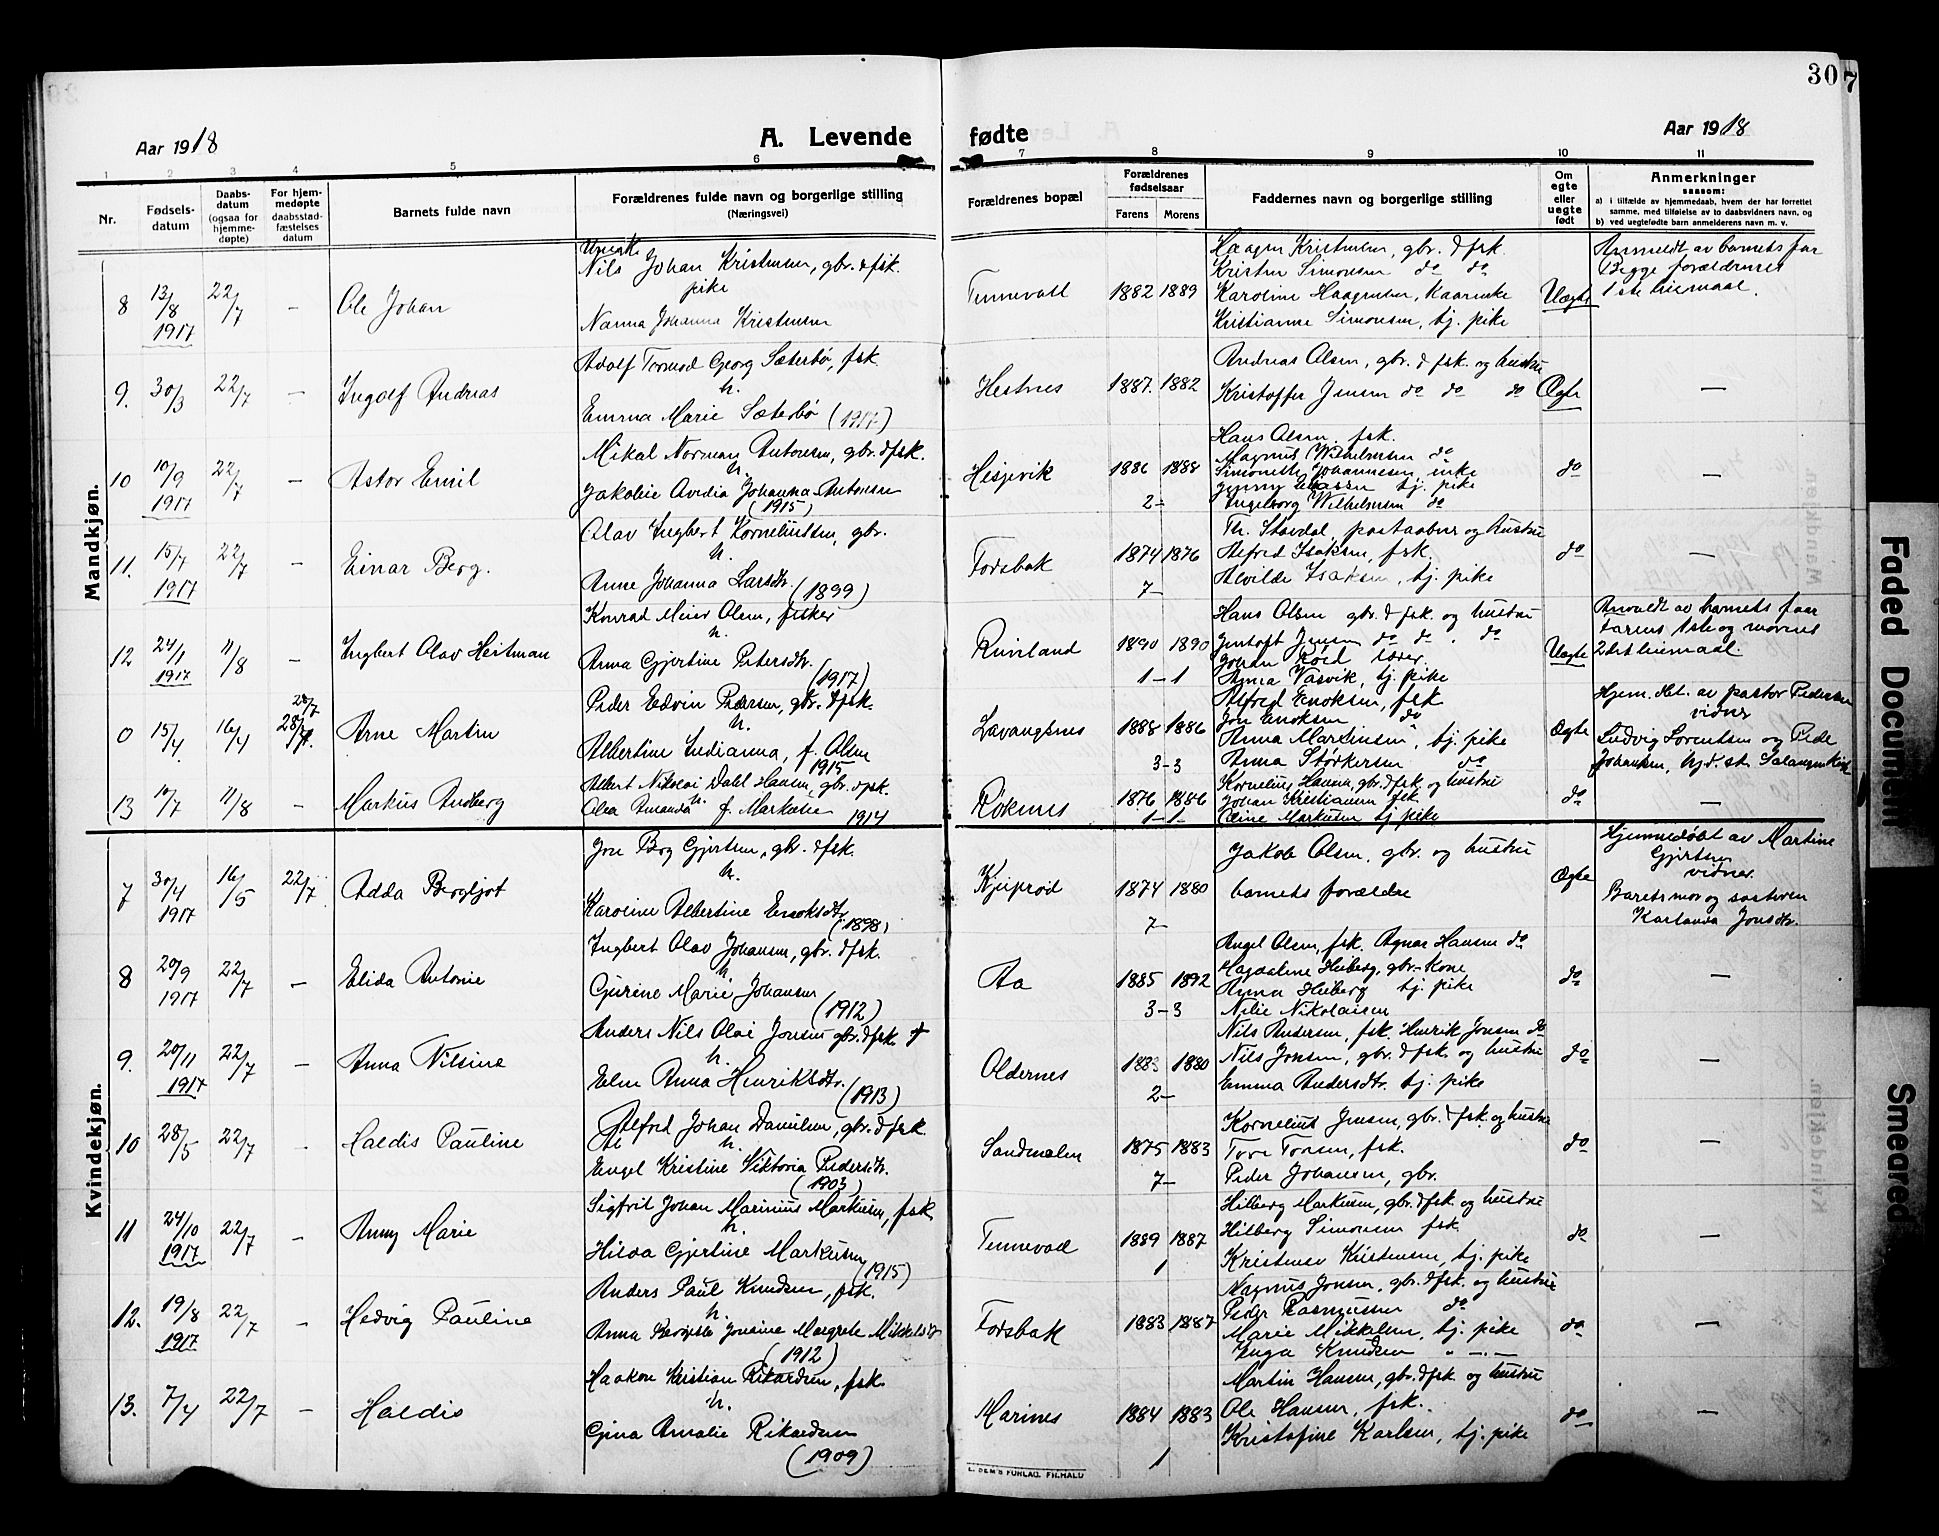 30
7
Aar 1918
A. Levende
fødte
Aar 1918
1 2 3 4 5 6 7 8 9 10 11
Nr.
Fødsels-
datum
Daabs-
datum
(ogsaa for
hjemme-
døpte)
For hjem-
medøpte
daabsstad-
fæstelses
datum
Barnets fulde navn
Forældrenes fulde navn og borgerlige stilling
(Næringsvei)
Forældrenes bopæl
Forældrenes
fødselsaar
Farens Morens
Faddernes navn og borgerlige stilling
Om
egte
eller
uegte
født
Anmerkninger
saasom:
a) i tilfælde av hjemmedaab, hvem der har forrettet
samme, med tilføielse av to daabsvidners navn, og
b) ved uegtefødte barn anmelderens navn m. v.
Mandkjøn.
8 13/8 1917 22/7 — Ole Johan
Ungk.
Nils Johan Kristensen, gbr. & fsk.
pike
Nanna Johanna Kristensen
Tennevatl 1882 1889
Haagen Kristensen, gbr. & fsk
Kristen Simonsen do do
Karoline Haagensen,
Kristianne Simonsen, tj. pike
Uegte
Anmeldt av barnets far
Begge forældrenes
1ste leiemaal.
9. 30/3 22/7 — Ingolf Andreas
Adolf Tormod Georg Sæterbø, fsk.
h.
Emma Marie Sæterbø (1917)
Hestnes 1887. 1882
Andreas Olsen, gbr. & fsk. og hustru
Kristoffer Jensen do do do
Ægte —
10 10/9 1917 22/7 — Astor Emil
Mikal Norman Antonsen, gbr. & fsk.
h.
Jakobie Avedia Johanna Antonsen
(1915)
Hesjevik 1886 1888
2-
Hans Olsen, fsk.
Magnus Wilhelmsen do
Simonette Johannesen, enke
Jenny Classen tj. pike
Ingeborg Wilhelmsen do
do —
11. 15/7 1917 22/7 — Einar Berg.
Olav Ingbert Korneliussen, gbr.
h.
Anne Johanna Larsdtr. (1899)
Forsbak 1874 1876
7-
Th. Stavdal, postaabner og hustru
Alfred Isaksen, fsk.
Alvilde Isaksen, tj. pike
do —
12 24/1 1917 11/8 — Ingbert Olav Heitman
Konrad Meier Olsen, fisker
h.
Anna Gjertine Petersdtr.
(1917)
1890 1890
1-1
Hans Olsen gbr. & fsk. og hustru
Jentoft Jensen do do. do
Johan Røed lærer.
Anna Vasvik, tj. pike
Uegte
Anmeldt av barnets far
Farens 1ste og morens
2det leiemaal.
0 15/4 16/4 28/7 28/7. Arne Martin
Peder Edvin Pedersen, gbr. & fsk.
h.
Albertine Indianna, f. Olsen
1915
Lavangsnes 1888 1886
3-3
Alfred Enoksen, fsk
Jon Enoksen do
Anna Martinsen, tj. pike
Anna Størkersen do
Ægte
Hjem. døbt. av pastor Pedersen
vidner
Ludvig Lorentsen og Peder
Johansen,
13 10/7 11/8 — Markus Andberg
Albert Nikolai Dahl Hansen, gbr. & fsk.
h.
Olea Amanda f. Markussen 1914
Røknes 1876 1886
1-1-
Kornelius Hansen, gbr. & fsk og hustru
Johan Kristiansen fsk
Oline Markusen tj. pike
do —
Kvindekjøn.
7 30/4 1917 16/5 22/7 Adda Bergljot
Jon Berg Gjertsen, gbr. & fsk.
h.
Karoline Albertine Enoksdtr.
(1898)
Kjeprød 1874 1880
7-
Jakob Olsen, gbr. og hustru
barnets forældre
Ægte
Hjemmedøbt av Martine
Gjertsen
vidner
Barets mor og søsteren
Karlanda Jonsdtr.
8 20/9 1917 22/7 — Elida Antonie
Ingbert Olav Johansen, gbr. & fsk.
h.
Gjurine Marie Johansen
(1912)
Aa 1885 1892
3-3
Angel Olsen, fsk. Agnar Hansen do
Magdaline Heiberg, gbr.-kone
Anna Heiberg tj. pike
Nelie Nikolaisen
do —
9. 20/11 1917 22/7 — Anna Nilsine
Anders Nils Olai Jonsen gbr. & fsk.
h.
Elen Anna Henriksdtr.
(1913)
Oldernes 1883 1880
2-
Nils Andersen, fsk. Henrik Jonsen do
Nils Jonsen, gbr. & fsk. og hustru
Emma Andersdtr. tj. pike
do —
10 28/5 22/7 — Haldis Pauline
Alfred Johan Danielsen, gbr. & fsk.
h.
Engel Kristine Viktoria Pedersdtr.
(1903)
Sandmelen 1875 1883
7-
Kornelius Jensen, gbr. & fsk. og hustru
Tore Toresen, fsk.
Peder Johansen, gbr.
do —
11 24/10 1917 22/7 — Anny Marie
Sigfrid Johan Marinius Markusen, fsk.
h.
Hilda Gjertine Markusen
(1915)
Tennevad 1889 1887
1
Hilberg Markusen, gbr. & fsk. og hustru
Hilberg Simonsen fsk.
Kristense Kristensen, tj. pike
do —
12. 19/8 1917 22/7 — Hedvig Pauline
Anders Paul Knudsen, fsk.
h.
Anna Jensine Margrete Mikkelsdtr
(1912)
Forsbak 1883 1887
Magnus Jonsen, gbr. & fsk. og hustru
Peder Rasmussen do
Marie Mikkelsen, tj. pike
Inga Knudsen " —.—
do —
13. 7/4 22/7 — Haldis
Haakon Kristian Rikardsen, fsk.
h.
Gina Amalie Rikardsen
(1909)
Marines 1884 1883
1
Martin Hansen, gbr. & fsk og hustru
Ole Hansen, fsk.
Kristofine Karlsen, tj. pike
do —
Faded Document
Smeared